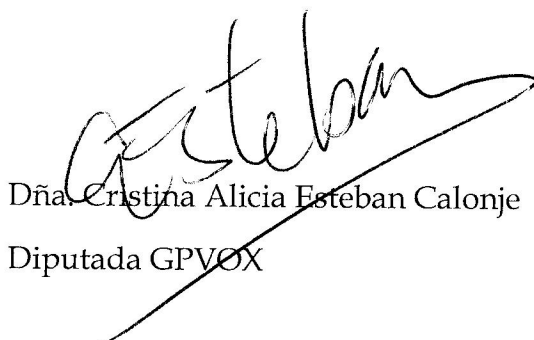 Esteban
Dña. Cristina Alicia Esteban Calonje
Diputada GPVOX